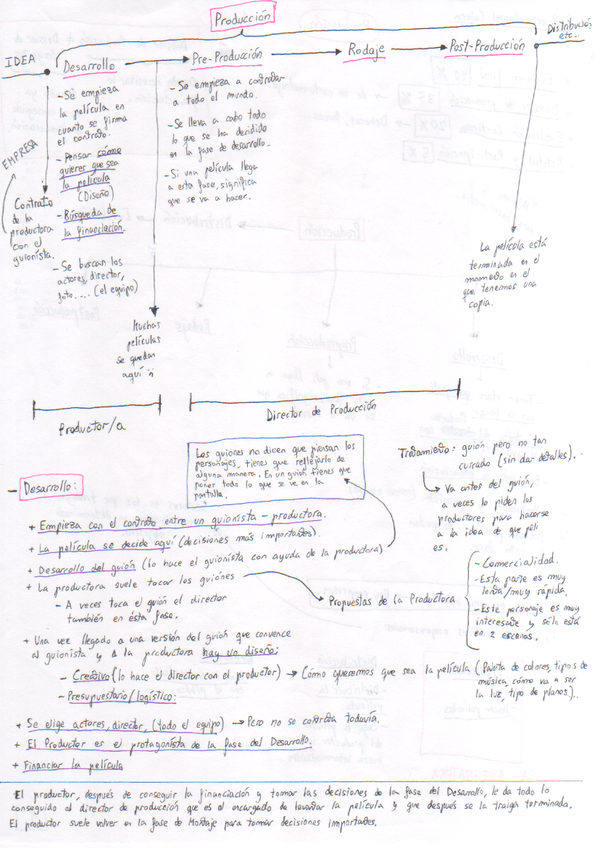 Producción
IDEA
Desarrollo
Pre-Producción
Rodaje
Post-Producción
Distribución
etc..
EMPRESA
Contrato
de la
productora
con el
guionista.
- Se empieza
la película en
cuanto se firma
el contrato.
- Pensar cómo
quieres que sea
la película
(Diseño)
- Búsqueda de
la financiación.
- Se buscan los
actores, director,
foto.... (el equipo)
Muchas
películas
se quedan
aquí :(
- Se empieza a contratar
a todo el mundo.
- Se lleva a cabo todo
lo que se ha decidido
en la fase de desarrollo.
- Si una película llega
a esta fase, significa
que se va a hacer.
La película está
terminada en el
momento en el
que tenemos una
copia.
Productor/a
Director de Producción
Los guiones no dicen que piensan los
personajes, tienes que reflejarlo de
alguna manera. En un guión tienes que
poner todo lo que se ve en la
pantalla.
Tratamiento: guión pero no tan
currado (sin dar detalles)..
Va antes del guión,
a veces lo piden los
productores para hacerse
a la idea de que peli
es.
- Desarrollo:
+ Empieza con el contrato entre un guionista - productora.
+ La película se decide aquí (decisiones más importantes).
+ Desarrollo del guión (lo hace el guionista con ayuda de la productora)
+ La productora suele tocar los guiones
- A veces toca el guión el director
también en esta fase.
Propuestas de la Productora
- Comercialidad.
- Esta parte es muy
lenta/muy rápida.
- Este personaje es muy
interesante y sólo está
en 2 escenas.
+ Una vez llegado a una versión del guión que convence
al guionista y a la productora hay un diseño:
- Creativo (lo hace el director con el productor) → Cómo queremos que sea la película (Paleta de colores, tipos de
música, cómo va a ser
la luz, tipo de planos)..
- Presupuestario/logístico:
+ Se elige actores, director, (todo el equipo) → Pero no se contrata todavía.
+ El Productor es el protagonista de la fase del Desarrollo.
+ Financiar la película
El productor, después de conseguir la financiación y tomar las decisiones de la fase del Desarrollo, le da todo lo
conseguido al director de producción que es el encargado de levantar la película y que después se la traiga terminada.
El productor suele volver en la fase de Montaje para tomar decisiones importantes.